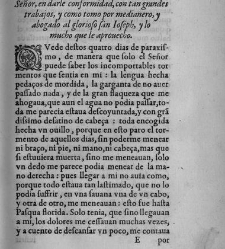 Señor, en darle conformidad, con tan grandes
trabajos, y como tomo por medianero, y
abogado al glorioso san Ioseph, y lo
mucho que le aprouecho.
QVede destos quatro dias de paraxis-
mo, de manera que solo el Señor
puede saber los incomportables tor
mentos que sentia en mi: la lengua hecha
pedaços de mordida, la garganta de no auer
passado nada, y de la gran flaqueza que me
ahogaua, que aun el agua no podia passar, to-
da me parecia estaua descoyuntada, y con grã
dissimo desatino de cabeça: toda encogida
hecha vn ouillo, porque en esto paro el tor-
mento de aquellos dias, sin poderme menear
ni braço, ni pie, ni mano, ni cabeça, mas que
si estuuiera muerta, sino me meneauan, solo
vn dedo me parece podia menear de la ma-
no derecha: pues llegar a mi no auia como,
porque todo estaua tan lastimado, que no lo
podia suffrir, en vna sauana vna de vn cabo,
y otra de otro, me meneauan: esto fue hasta
Pasqua florida. Solo tenia, que sino llegauan
a mi, los dolores me cessauan muchas vezes,
y a cuento de descansar vn poco, me contaua
E por